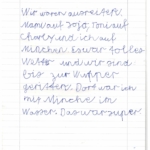 Wir waren ausreiten.
Mami auf Jofa, Toni auf
Charly und ich auf
Minchen. Es war tolles
Wetter und wir sind
bis zur Wupper
geritten. Dort war ich
mit Minche im
Wasser. Das war super